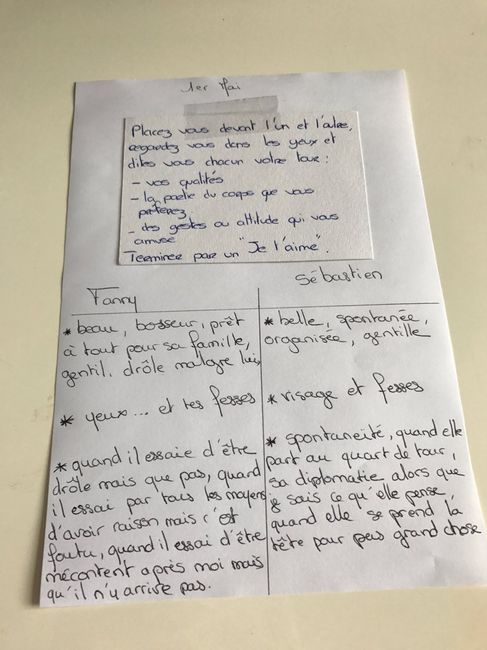 1er Mai
Placez vous devant l'un et l'autre,
regardez vous dans les yeux et
dites vous chacun votre tour :
- vos qualités
- la partie du corps que vous
préférez
- des gestes ou attitude qui vous
amuse
Terminez par un "Je t'aime".
Fanny
* beau, bosseur, prêt
à tout pour sa famille,
gentil, drôle malgre lui,
* yeux... et tes fesses
* quand il essaie d'être
drôle mais que pas, quand
il essai par tous les moyens
d'avoir raison mais c'est
foutu, quand il essai d'être
mécontent après moi mais
qu'il n'y arrive pas.
Sébastien
* belle, spontanée,
organisée, gentille
* visage et fesses
* spontaneité, quand elle
part au quart de tour,
sa diplomatie alors que
je sais ce qu'elle pense,
quand elle se prend la
tête pour pas grand chose